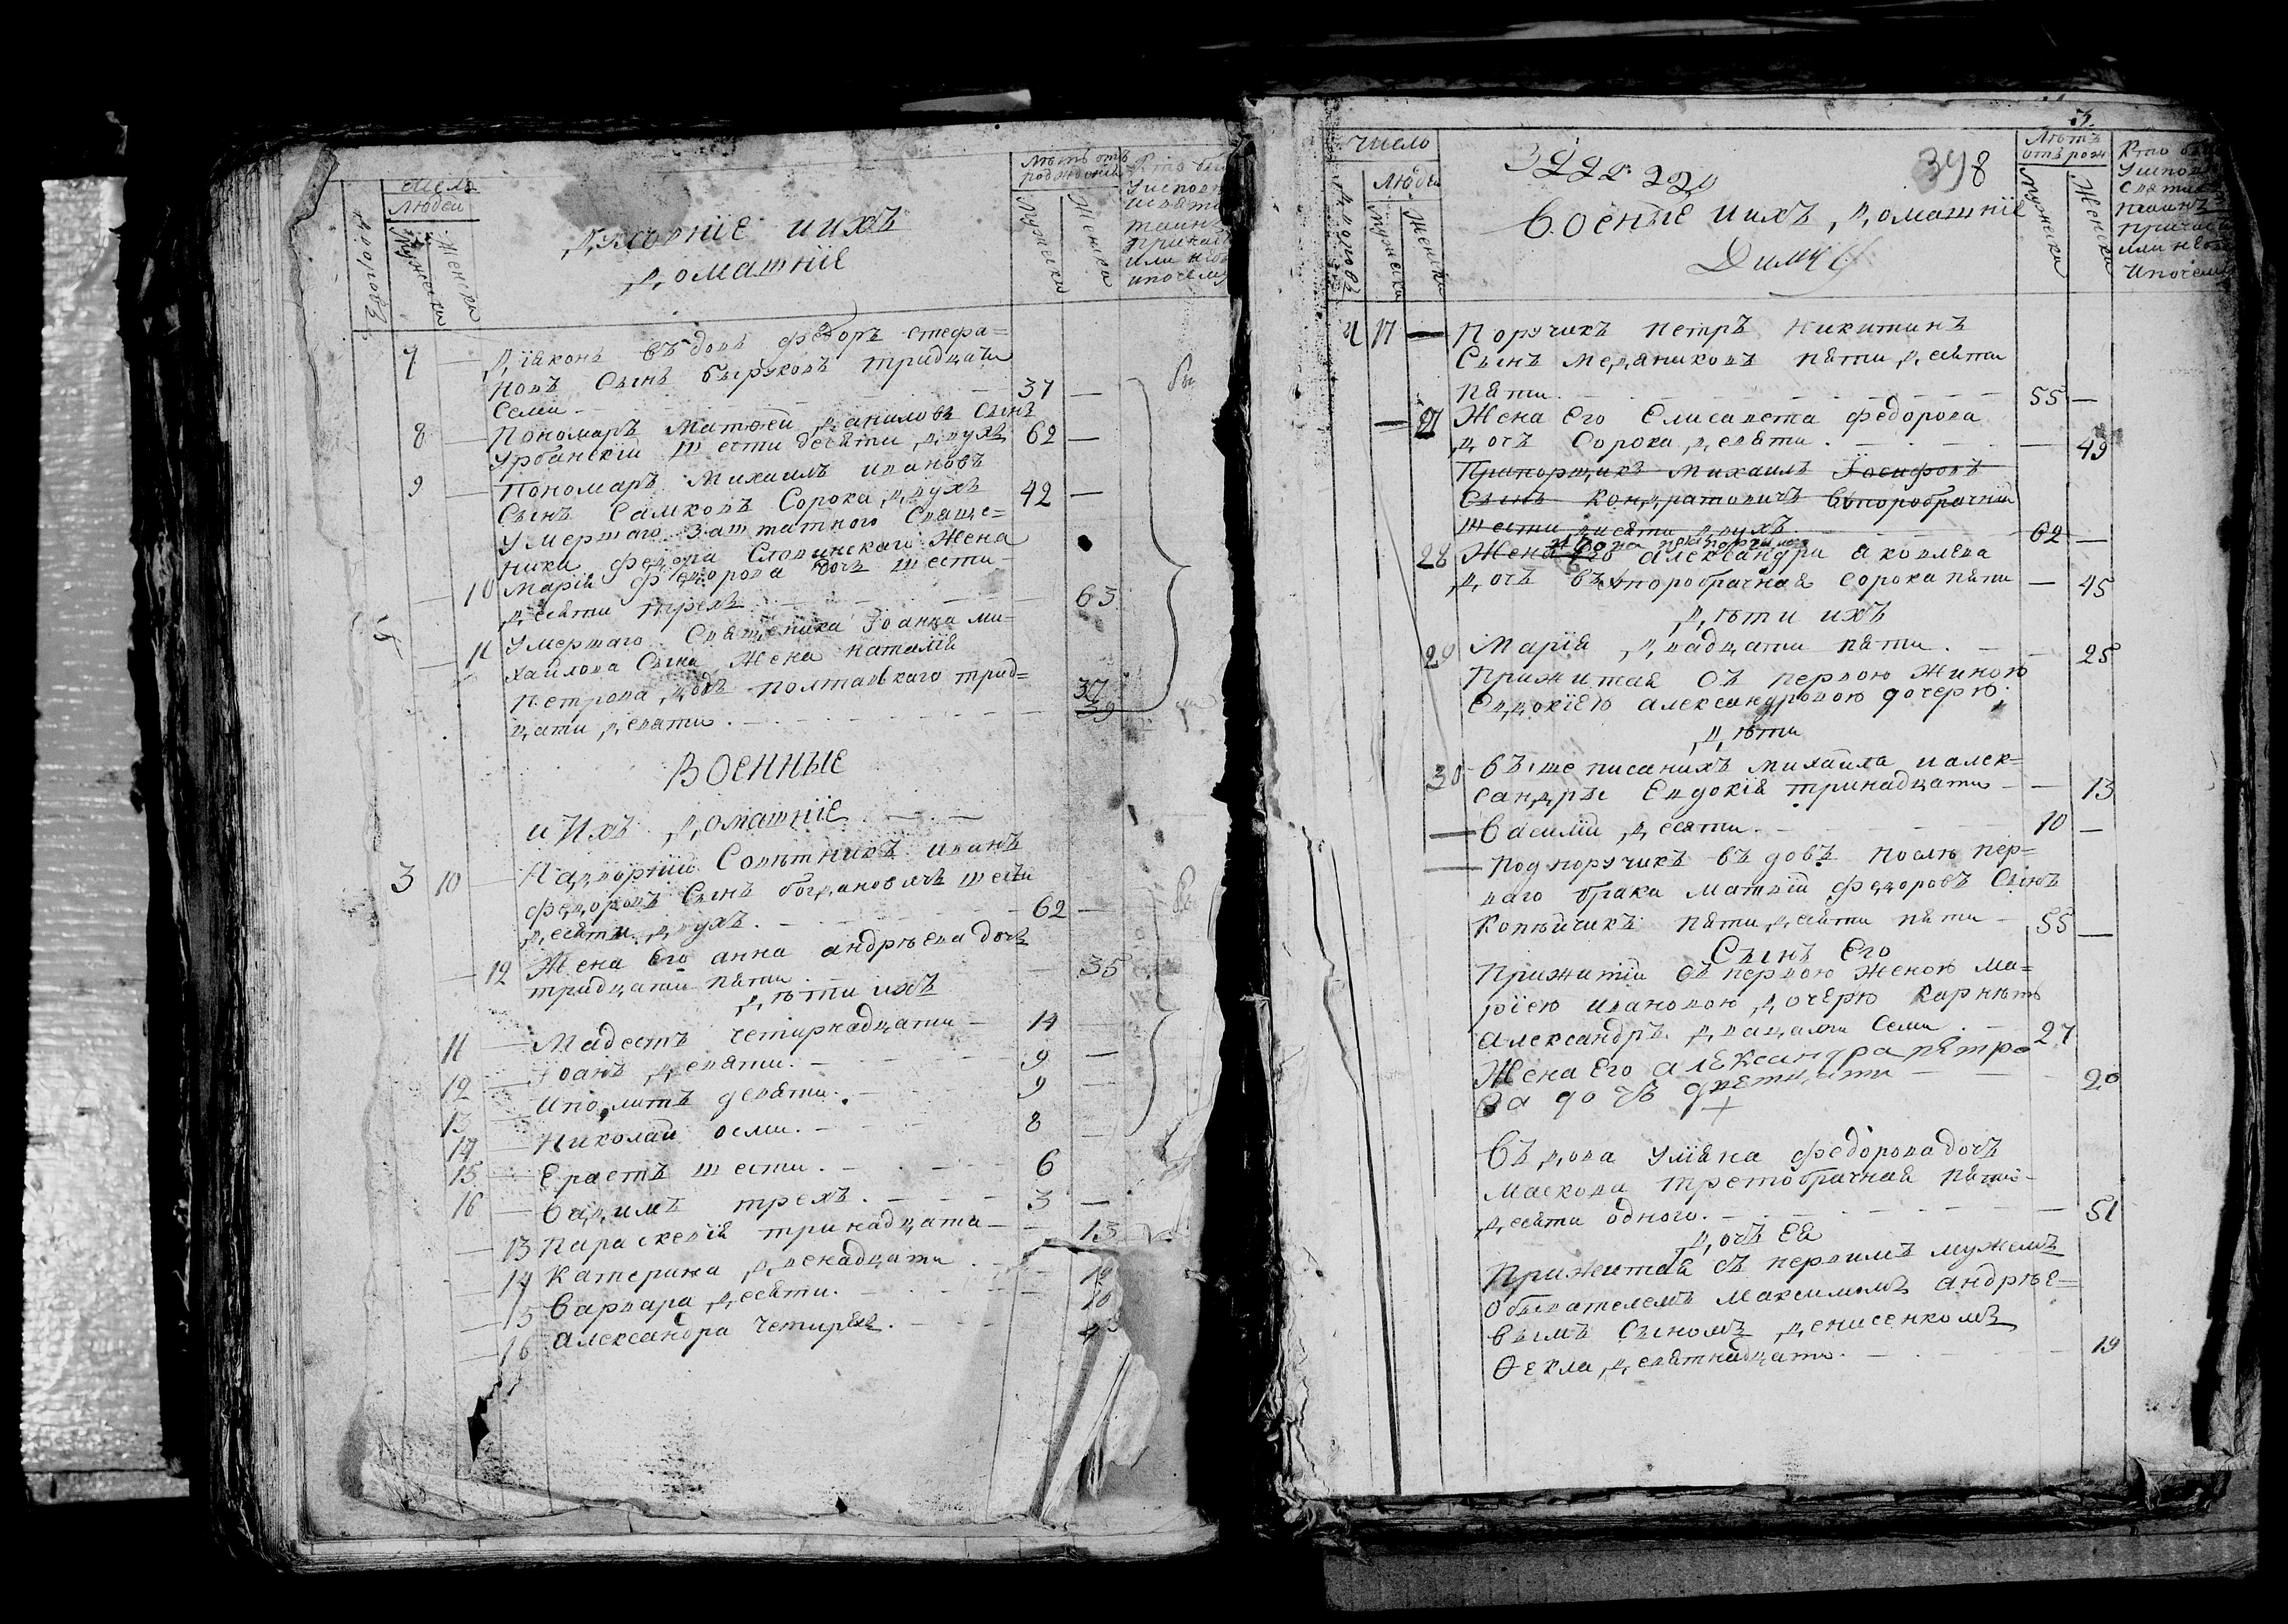 Число
Людей
Дворовъ
Мужеска
Женска
Духовніе и ихъ
Домашніе
Лѣтъ отъ
рожденій
Мужеска
Женска
7 — Діяконъ въдовъ Федоръ Стефа=
новъ Сынъ Быруковъ тридцати
Семи — 37 —
8 — Пономаръ Матθей Даниловъ Сынъ
Урбанскій шестидесяти двухъ 62 —
9 — Пономаръ Михаилъ Ивановъ
Сынъ Самковъ Сорока двухъ 42 —
Умершаго Заштатного Сваще=
ника Федора Словинскаго Жена
— 10 Марія Федорова дочь шести
десяти трехъ — 63
Умершаго Свящѣника Іоанна Ми=
— 11 хайлова Сына Жена Наталія
Петрова дочь Полтавкаго трид=
37
цати девяти — 39
Военные
и Ихъ Домашніе
3 10 — Надворній Совѣтникъ Иванъ
Федоровъ Сынъ Богдановичъ шести
десяти двухъ — 62 —
— 12 Жена Его Анна Андрѣева дочъ
тридцати пяти — 35
Дѣти ихъ
11 — Мадестъ четирнадцати — 14
12 — Іоанъ девяти — 9 —
13 — Иполитъ девяти — 9 —
14 — Николай осми — 8 —
15 — Ерастъ шести — 6
16 — Вадимъ трехъ — 3 —
— 13 Параскевія тринадцати — 13
— 14 Катерина двенадцати — 12
— 15 Варвара десяти — 10
— 16 Александра четирехъ — 4
3.
Число
Людей
Дворовъ
Мужеска
Женска
398
Военые и ихъ Домашніе
Лѣтъ
отъ рож
Мужеска
Женска
4 17 — Поручикъ Петръ Никитинъ
Сынъ Медяниковъ пятидесяти
пяти — 55 —
— 27 Жена Его Елисавета Федорова
дочъ Сорока девяти — 49
Прапорщикъ Михаилъ Іосифовъ
Сынъ Кондратовичъ Второбрачній
шестидесяти двухъ — 62 —
28 Жена Его Александра Яковлева
дочъ второбрачная Сорока пяти — 45
Дѣти ихъ
29 Марія двадцати пяти — 25
Прижитая Съ первою Жиною
Евдокіею Александровою дочерю
Дѣти
30 Въшеписанихъ Михайла и Алек=
сандры Евдокія тринадцати — 13
— Василій десяти — 10 —
— Подпоручикъ въдовъ послѣ пер=
ваго брака Матвій Федоровъ Сынъ
Копѣйчикъ пятидесяти пяти — 55 —
Сынъ Его
Прижитій Съ первою Женою Ма=
рією Ивановою дочерю Карнѣтъ
Александръ двацати Семи — 27
Жена Его Александра петро
ва дочъ дветцати — 20
Въдова Уліяна Федорова дочъ
Маскова третобрачная пяти=
десяти одного — 51
дочъ Ея
Прижитая съ первимъ мужемъ
Обывателемъ Максимомъ Андрѣе=
вымъ Сыномъ Денисенкомъ
Θекла девятнадцати — 19